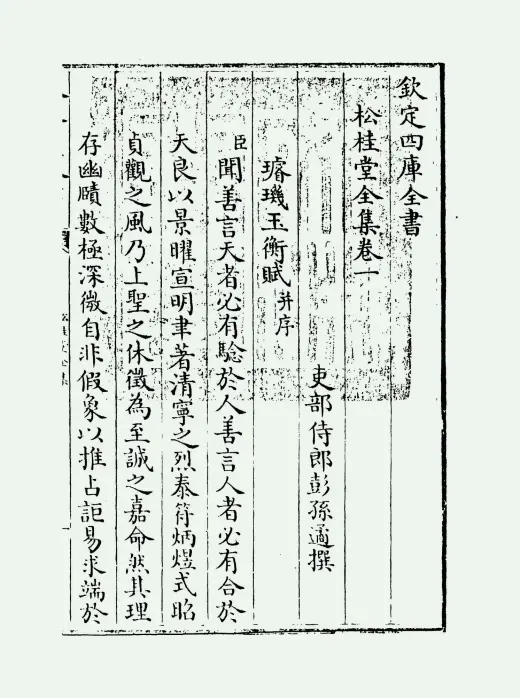 欽定四庫全書
松桂堂全集卷一
吏部侍郎彭孫遹撰
璿璣玉衡賦并序
臣聞善言天者必有驗於人善言人者必有合於
天良以景曜宣明聿著清寧之烈泰符炳煜式昭
貞觀之風乃上聖之休徵為至誠之嘉命然其理
存幽賾數極深微自非假象以推占詎易求端於